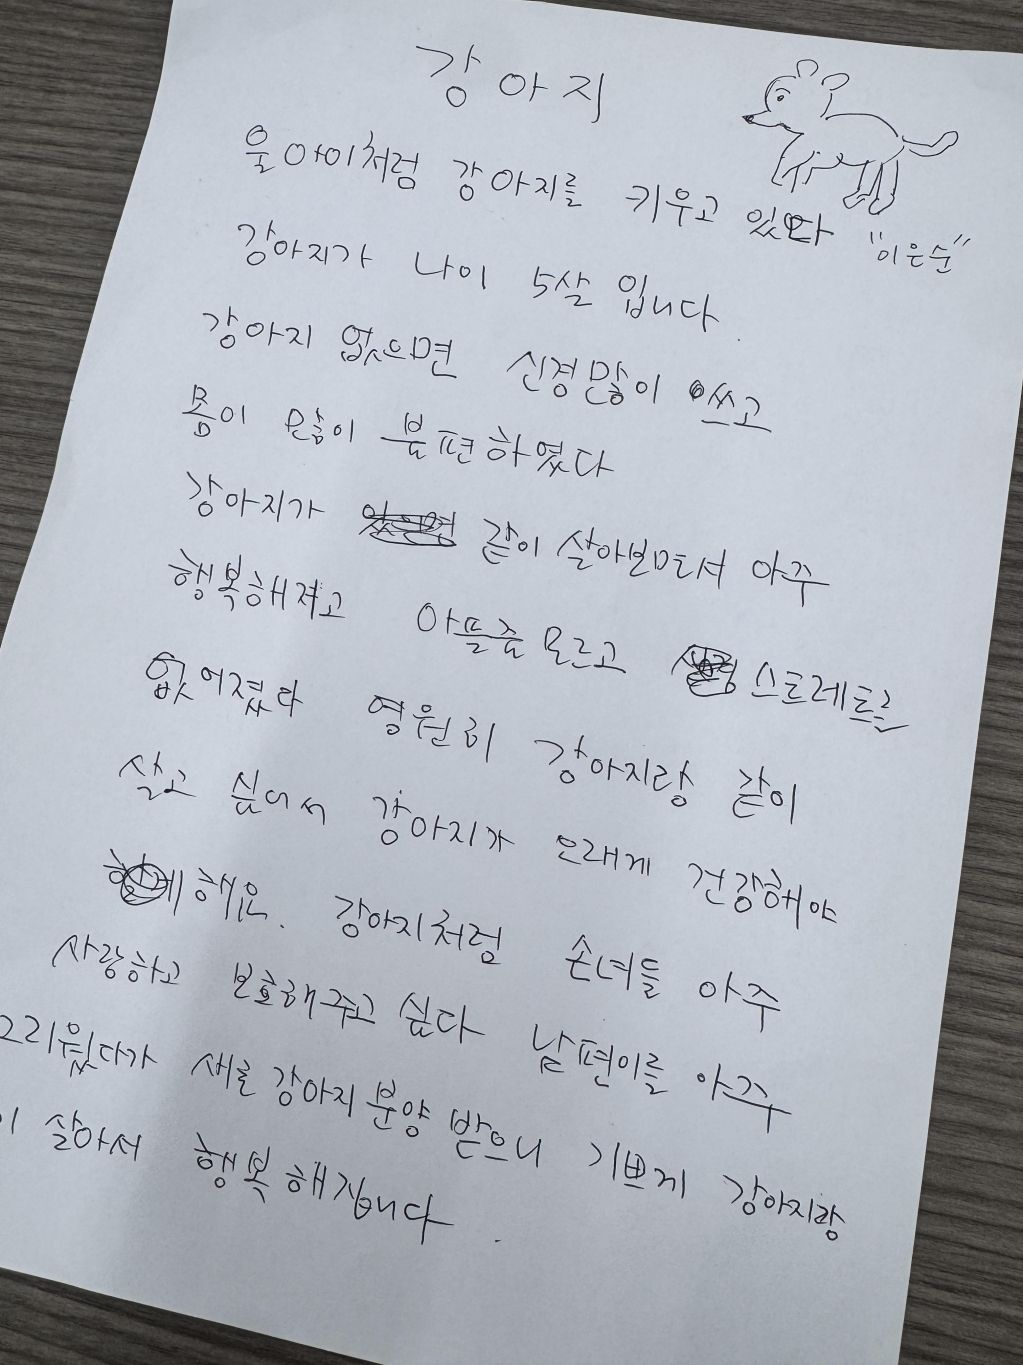 강아지
울 아이처럼 강아지를 키우고 있다 "이은순"
강아지가 나이 5살 입니다.
강아지 없으면 신경많이 쓰고
몸이 많이 불편하였다
강아지가 같이 살아보면서 아주
행복해져고 아픔줄 모르고 스트레트르
없어졌다 영원히 강아지랑 같이
살고 싶어서 강아지가 오래게 건강해야
해요. 강아지처럼 손녀들 아주
사랑하고 보호해주고 싶다 남편이를 아주
그리웠다가 새로 강아지 분양 받으니 기쁘게 강아지랑
이 살아서 행복해집니다.